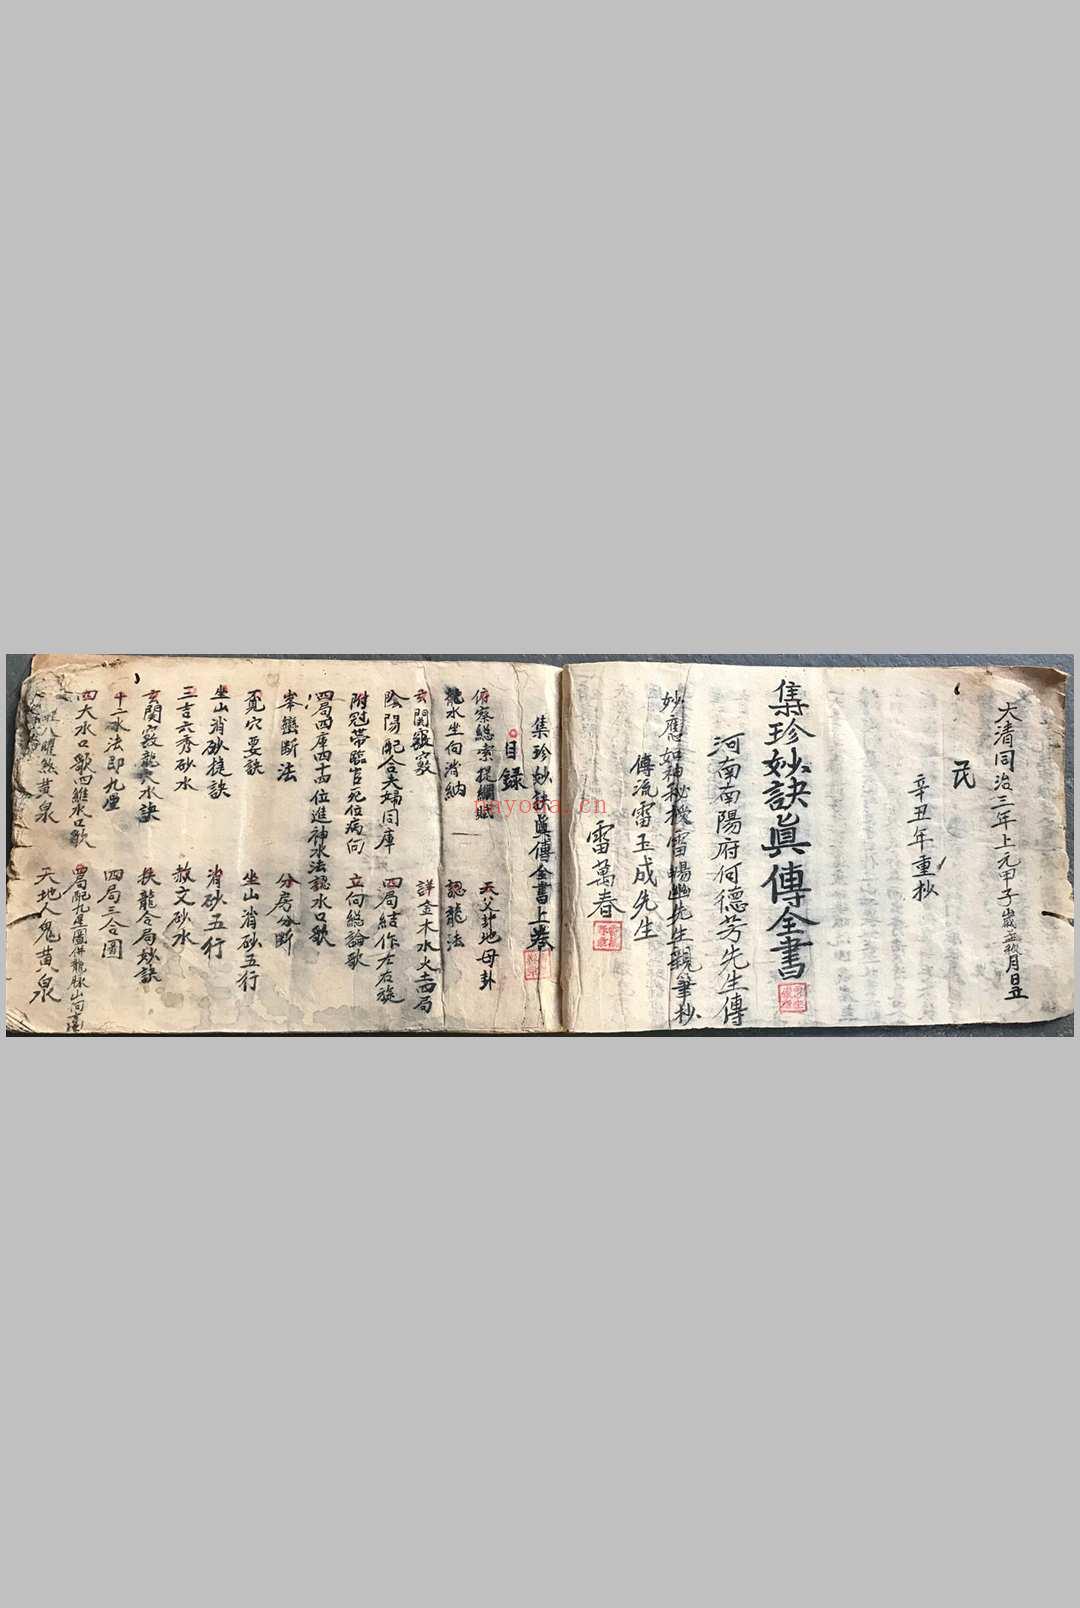 大清同治三年上元甲子歲孟秋月日立
辛丑年重抄
集珍妙訣真傳全書
河南南陽府何德芳先生傳
妙應如神秘授雷暢幽先生親筆抄
傳流雷玉成先生
雷萬春
集珍妙訣真傳全書上卷
目録
俯察総索提綱賦 天父卦地母卦
龍水坐向消納 認龍法
玄関竅竅 詳金木水火土四局
陰陽配合夫婦同庫 四局結作左右旋
附冠帶臨官死位病向 立向総論歌
四局四庫四十四位進神水法認水口歌
峯巒斷法 分房分斷
覓穴要訣 坐山消砂五行
坐山消砂捷訣 消砂五行
三吉六秀砂水 救文砂水
玄関竅龍穴水訣 扶龍合局妙訣
十二水法即九星 四局三合圖
四大水口歌四維水口歌
八曜煞黄泉 天地人鬼黄泉
nayoda.cn